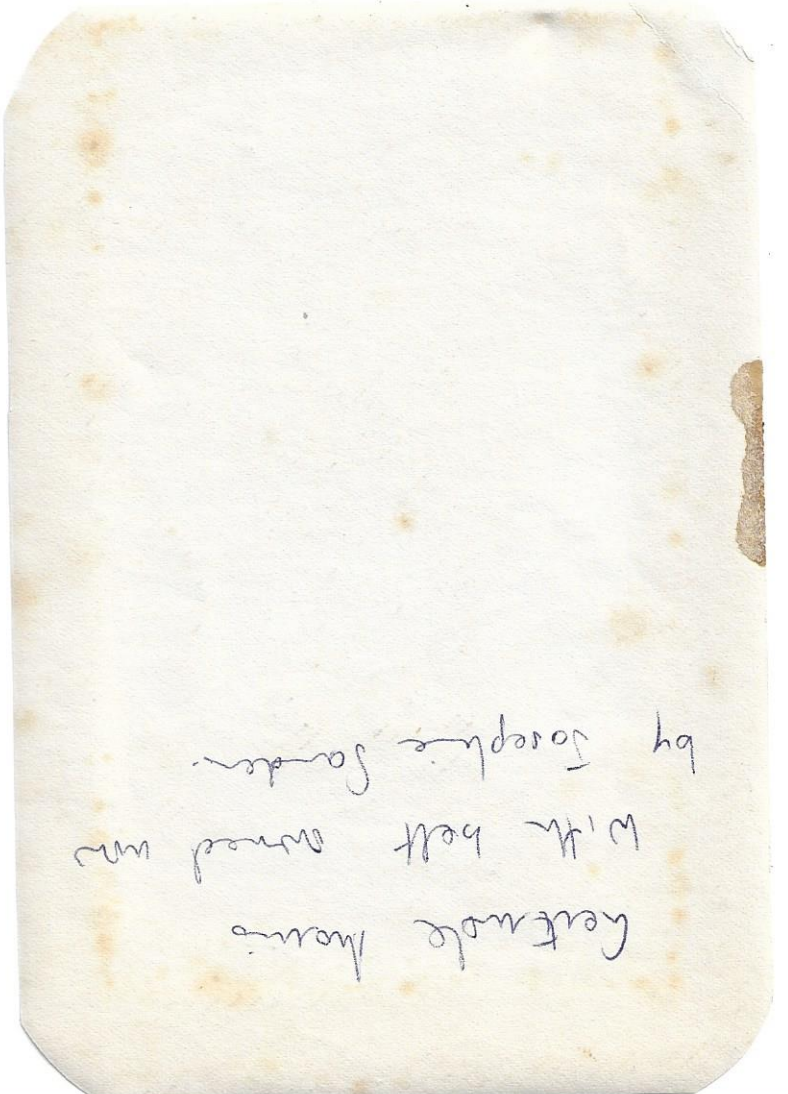 Gertrude Morris
With belt owned now
by Josephine Sander.